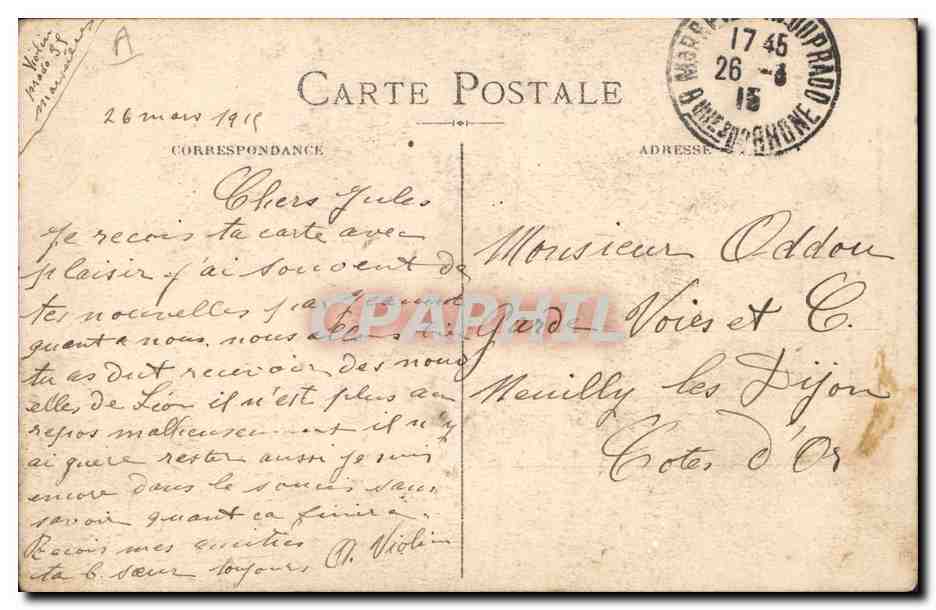 Violin
prado 99
marseille
A
CARTE POSTALE
26 mars 1915
CORRESPONDANCE
ADRESSE
17 45
26 - 3
15
B DU RHONE
Chers Jules
Je recois ta carte avec
plaisir j'ai souvent de
tes nouvelles par Jeannot
quant a nous nous allons bien
tu as dut recevoir des nouv
elles de Léon il n'est plus au
repos malheusement il n'y
ai guere rester aussi je suis
encore dans le soucis sans
savoir quant ca finira.
Recois mes amities
ta b. sœur toujours A. Violin
Monsieur Oddou
Garde Voies et C.
Neuilly les Dijon
Cotes d'Or
CPAPHIL